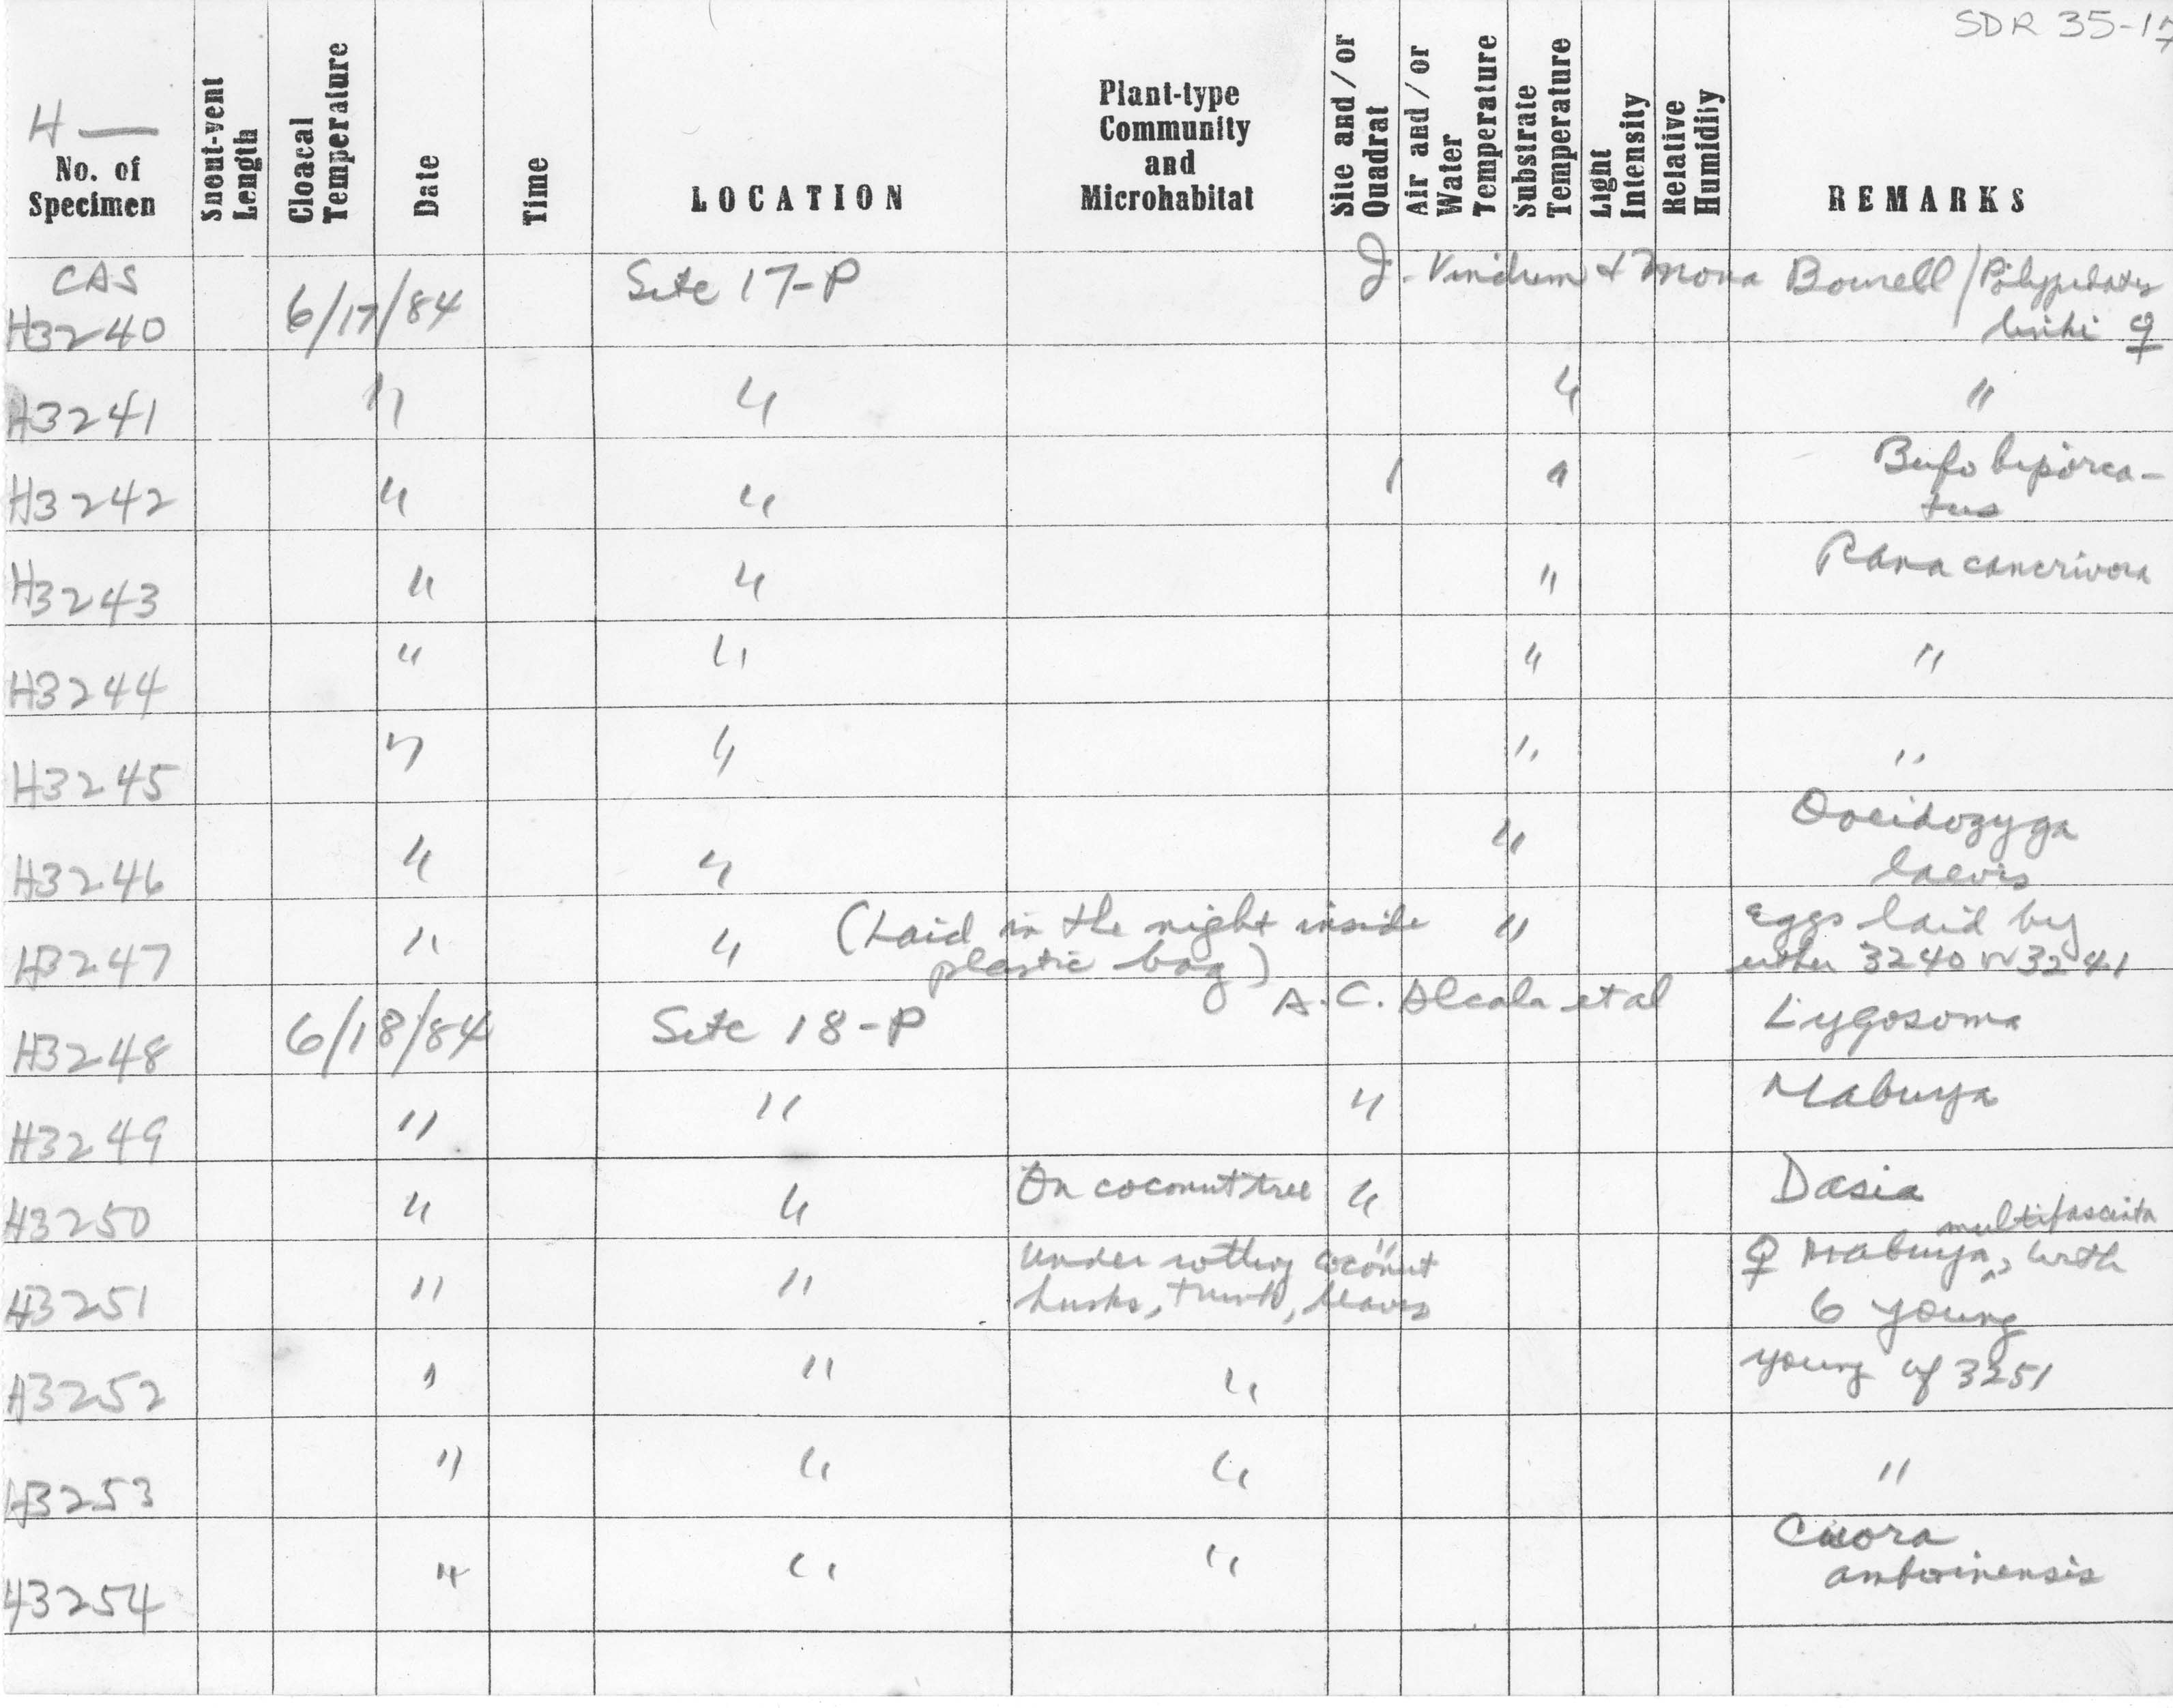 SDR 35-17
H —
No. of Specimen
Snout-vent Length
Cloacal Temperature
Date
Time
LOCATION
Plant-type Community and Microhabitat
Site and/or Quadrat
Air and/or Water Temperature
Substrate Temperature
Light Intensity
Relative Humidity
REMARKS
CAS H3240 6/17/84 Site 17-P J. Vindum & Mona Bourell / Polypedates ♀
H3241 " " " "
H3242 " " " Bufo biporca-
tus
H3243 " " " Rana cancrivora
H3244 " " " "
H3245 " " " "
H3246 " " " Ooeidozyga
laevis
H3247 " " (Laid in the night inside " Eggs laid by
plastic bag) either 3240 or 3241
H3248 6/18/84 Site 18-P A.C. Alcala et al Lygosoma
H3249 " " " Mabuya
H3250 " " On coconut tree " Dasia
multifasciata
H3251 " " Under rotting coconut " ♀ Mabuya ^, with
husks, trunks, leaves 6 young
H3252 " " " young of 3251
H3253 " " " "
H3254 " " " Cuora
amboinensis